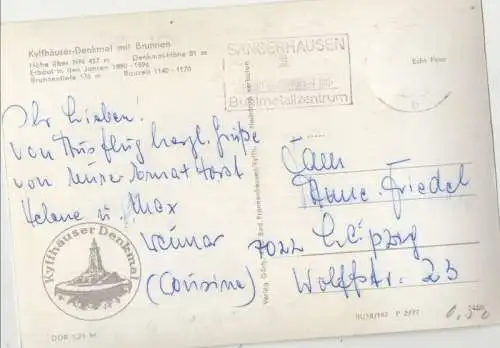 Kyffhäuser-Denkmal mit Brunnen
Höhe über NN 457 m Denkmal-Höhe 81 m
Erbaut in den Jahren 1890-1896
Brunnentiefe 176 m Bauzeit 1140-1170
SANGERHAUSEN
Buntmetallzentrum
Echt Foto
Ihr Lieben!
von Ausflug herzl. Grüße
von
Helene u. Max
Weimar
(Cousine)
Fam
Friedel
7022 Leipzig
Wolffstr. 23
Kyffhäuser Denkmal
Verlag Bad Frankenhausen/Kyffh.
DDR